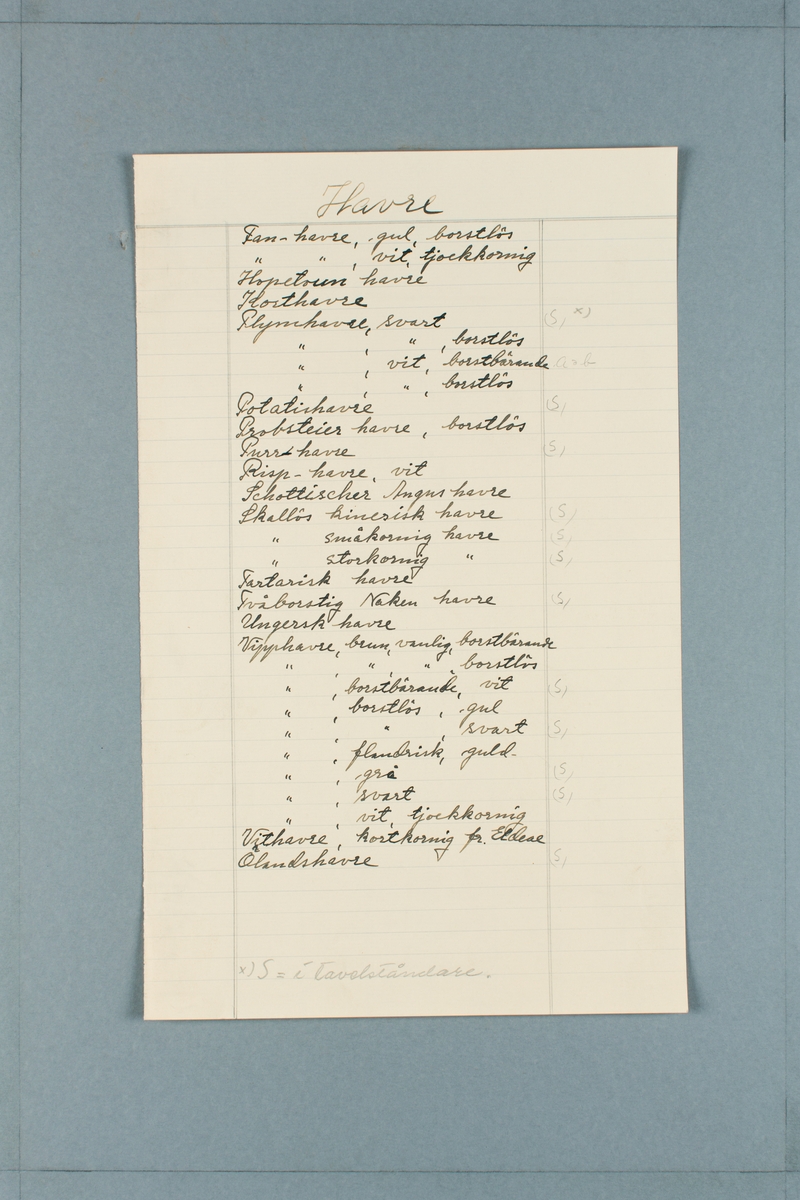 Havre
Fan-havre, gul, borstlös
" " , vit, tjockkornig
Hopetoun havre
Kosthavre
Plymhavre, svart (S) x)
" , " , borstlös
" , vit, borstbärande
" , " , borstlös
Potatishavre (S)
Probsteier havre, borstlös
Purr-havre (S)
Risp-havre, vit
Schottischer Angus havre
Skallös kinesisk havre (S)
" småkornig havre (S)
" storkornig " (S)
Tartarisk havre
Tvåborstig Naken havre (S)
Ungersk havre
Vipphavre, brun, vanlig, borstbärande
" , " , " , borstlös
" , borstbärande, vit (S)
" , borstlös, gul
" , " , svart (S)
" , flandrisk, guld-
" , grå (S)
" , svart (S)
" , vit, tjockkornig
Vithavre, kortkornig fr. Eldeae
Ölandshavre (S)
x) S = i tavelståndare.